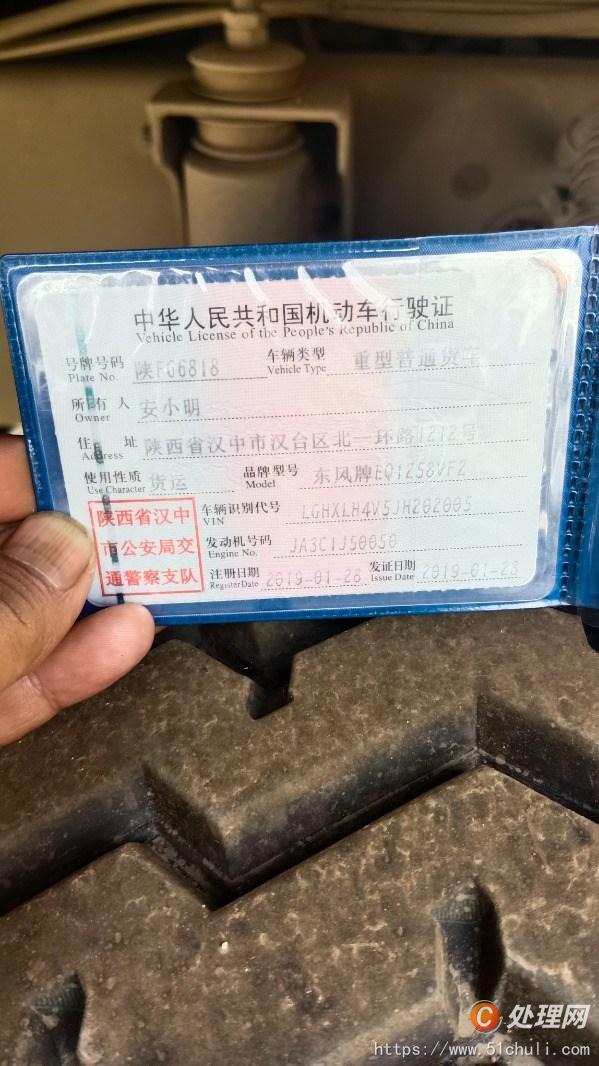 中华人民共和国机动车行驶证
Vehicle License of the People's Republic of China
号牌号码 陕FG6818 车辆类型 重型普通货车
Plate No. Vehicle Type
所有人 安小明
Owner
住址 陕西省汉中市汉台区北一环路1212号
Address
使用性质 货运 品牌型号 东风牌EQ1258VF2
Use Character Model
车辆识别代号 LGHXLH4V5JH202005
VIN
发动机号码 JA3C1J50050
Engine No.
注册日期 2019-01-28 发证日期 2019-01-23
Register Date Issue Date
陕西省汉中
市公安局交
通警察支队
C 处理网
https://www.51chuli.com/